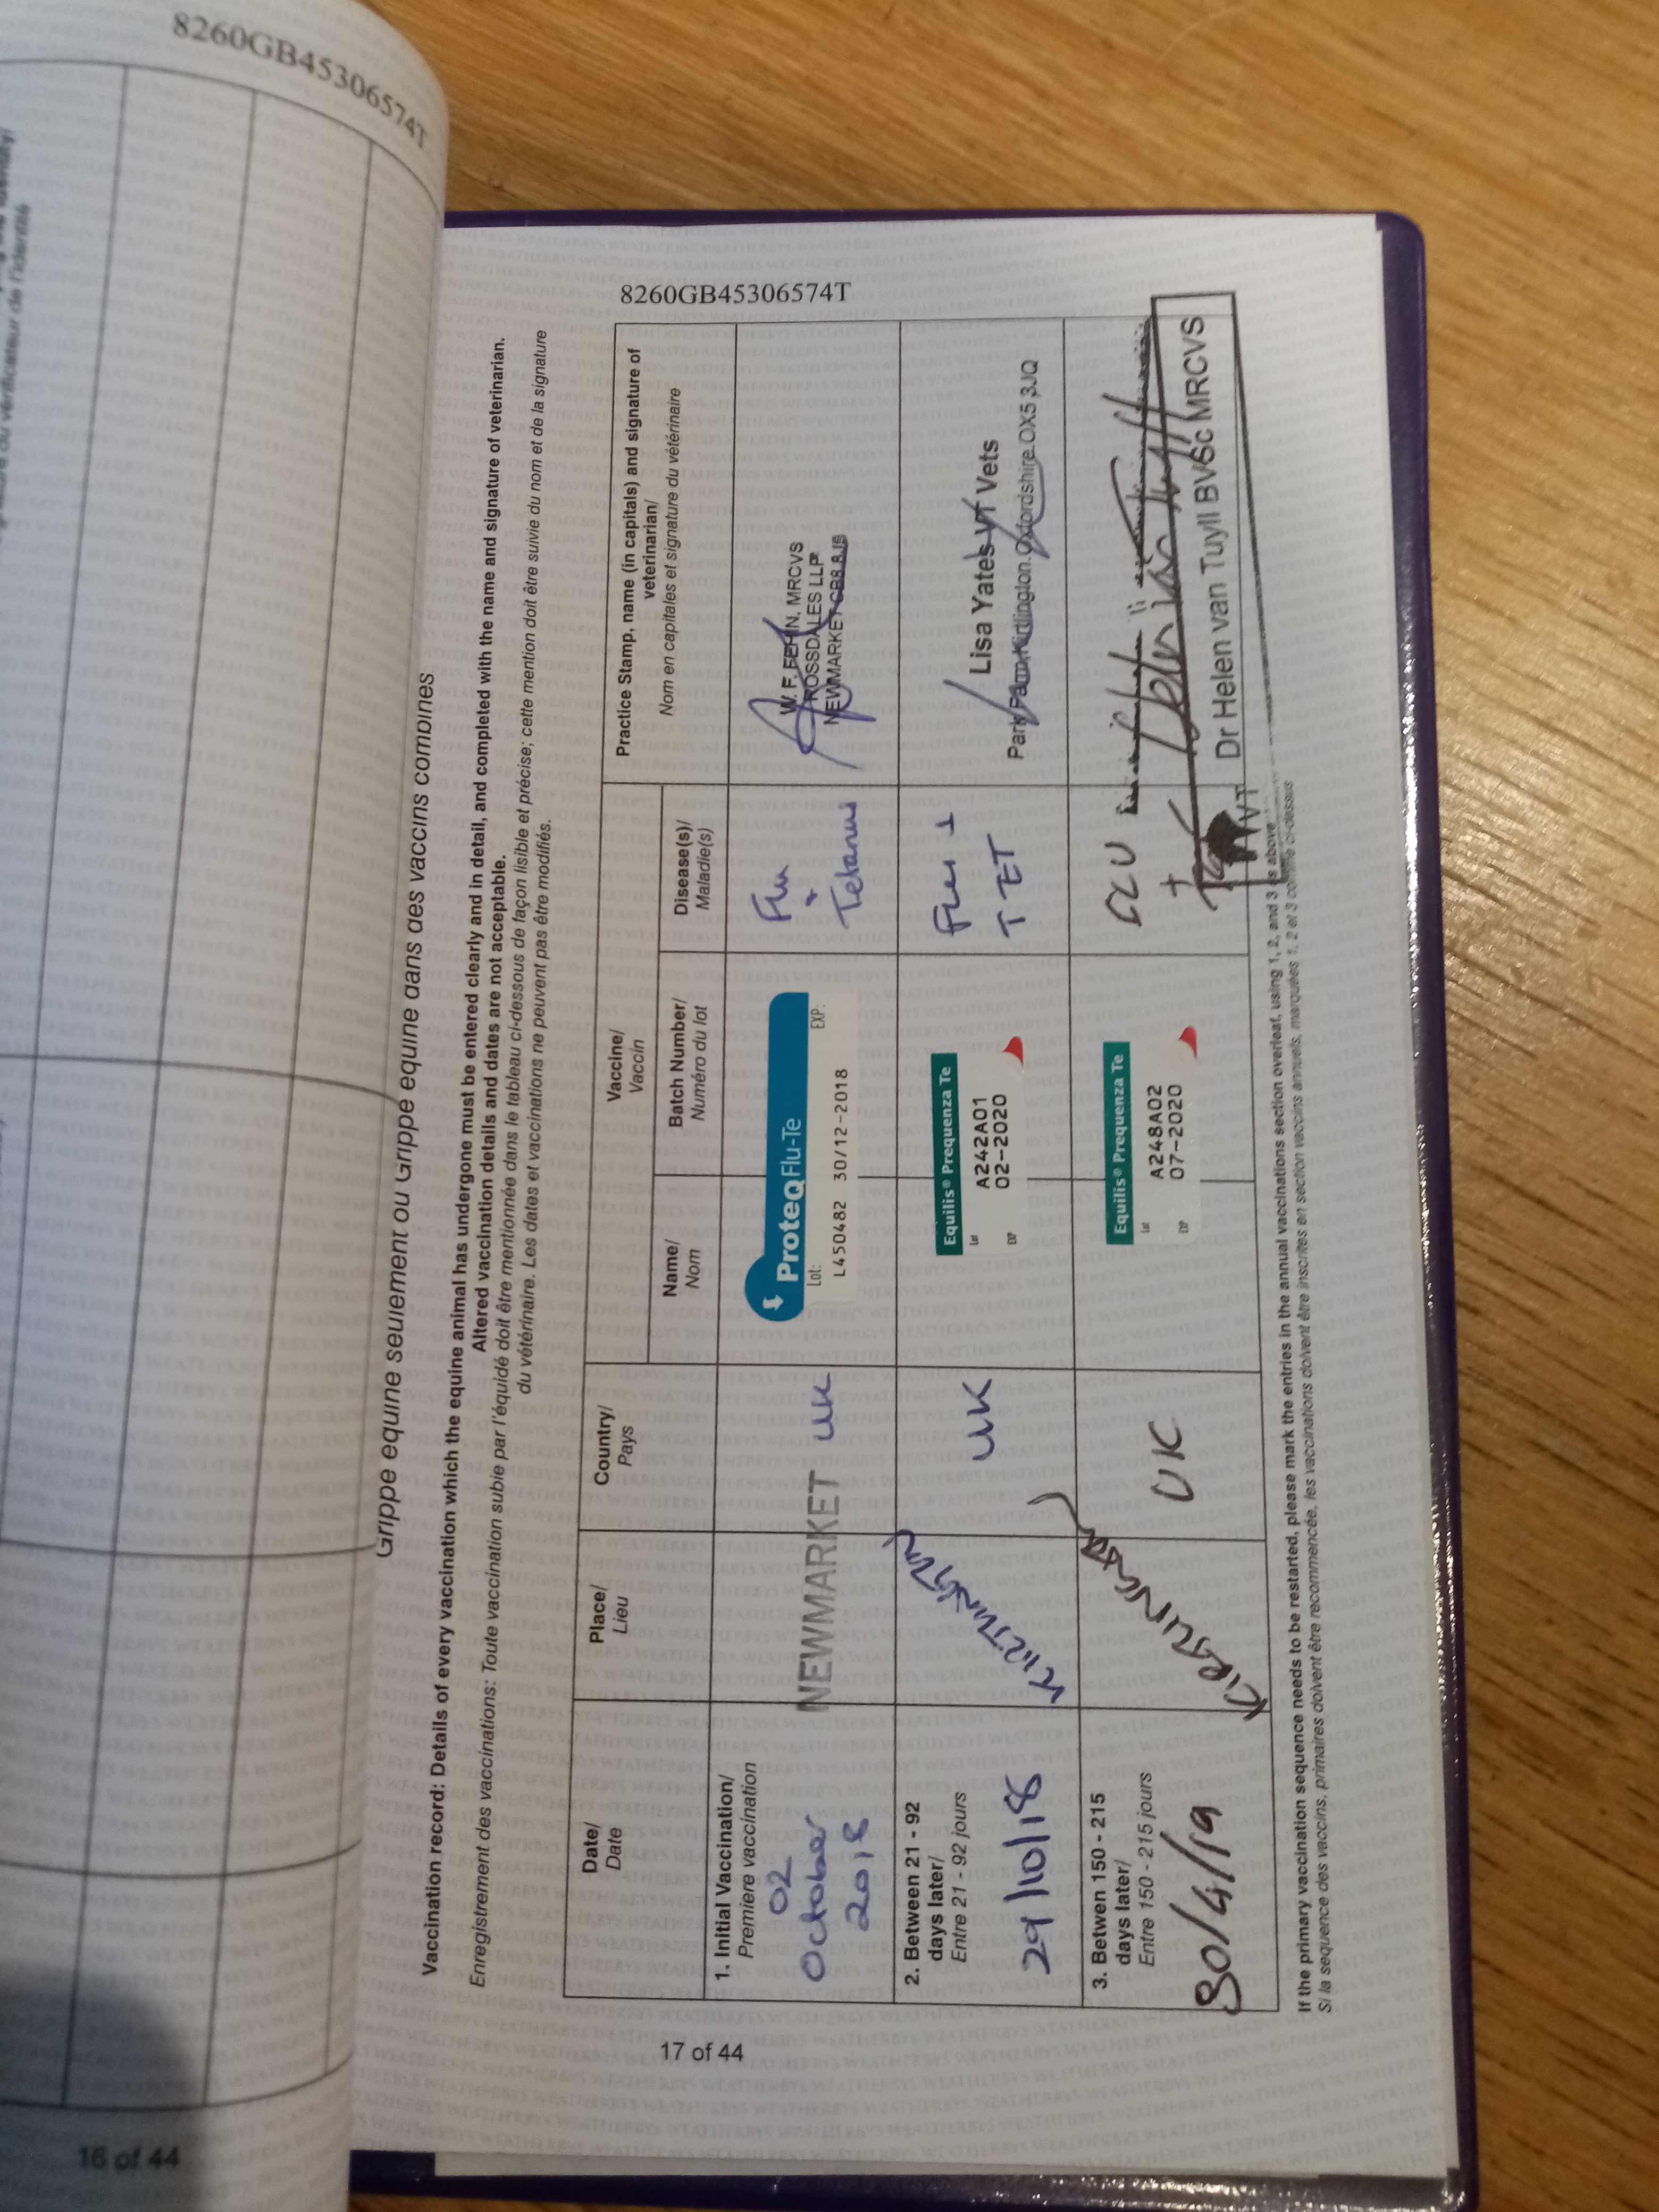 8260GB45306574T
16 of 44
8260GB45306574T
17 of 44
Grippe equine seulement ou Grippe equine dans des vaccins combines
Vaccination record: Details of every vaccination which the equine animal has undergone must be entered clearly and in detail, and completed with the name and signature of veterinarian.
Altered vaccination details and dates are not acceptable.
Enregistrement des vaccinations: Toute vaccination subie par l'équidé doit être mentionnée dans le tableau ci-dessous de façon lisible et précise; cette mention doit être suivie du nom et de la signature
du vétérinaire. Les dates et vaccinations ne peuvent pas être modifiés.
Date/
Date
Place/
Lieu
Country/
Pays
Vaccine/
Vaccin
Name/
Nom
Batch Number/
Numéro du lot
Disease(s)/
Maladie(s)
Practice Stamp, name (in capitals) and signature of
veterinarian/
Nom en capitales et signature du vétérinaire
1. Initial Vaccination/
Premiere vaccination
02
October
2018
NEWMARKET
UK
ProteqFlu-Te
Lot: EXP:
L450482 30/12-2018
Flu
+
Tetanus
W. F. FEHIN. MRCVS
ROSSDALES LLP
NEWMARKET CB8 8JS
2. Between 21 - 92
days later/
Entre 21 - 92 jours
29/10/18
UK
Equilis® Prequenza Te
Lot A242A01
EXP 02-2020
Flu +
TET
Lisa Yates VT Vets
Park Farm, Kirtlington, Oxfordshire. OX5 3JQ
3. Between 150 - 215
days later/
Entre 150 - 215 jours
30/4/19
UK
Equilis® Prequenza Te
Lot A248A02
EXP 07-2020
FLU
+
VT
Dr Helen van Tuyll BVSc MRCVS
If the primary vaccination sequence needs to be restarted, please mark the entries in the annual vaccinations section overleaf, using 1, 2, and 3 as above
Si la sequence des vaccins, primaires doivent être recommencée, les vaccinations doivent être inscrites en section vaccins annuels, marquées 1, 2 et 3 comme ci-dessus